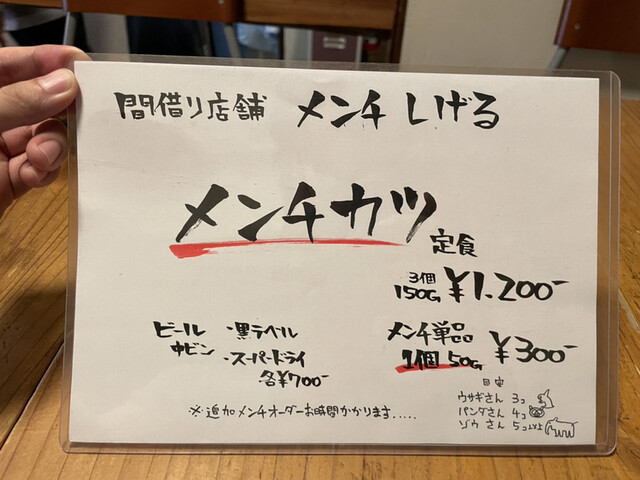 間借り店舗 メンチ しげる
メンチカツ
定食
3個
150G ¥1.200-
ビール ・黒ラベル
中ビン ・スーパードライ
各¥700-
メンチ単品
1個 50G ¥300-
目安
ウサギさん 3コ
パンダさん 4コ
ゾウさん 5コ以上
※追加メンチオーダーお時間かかります.....